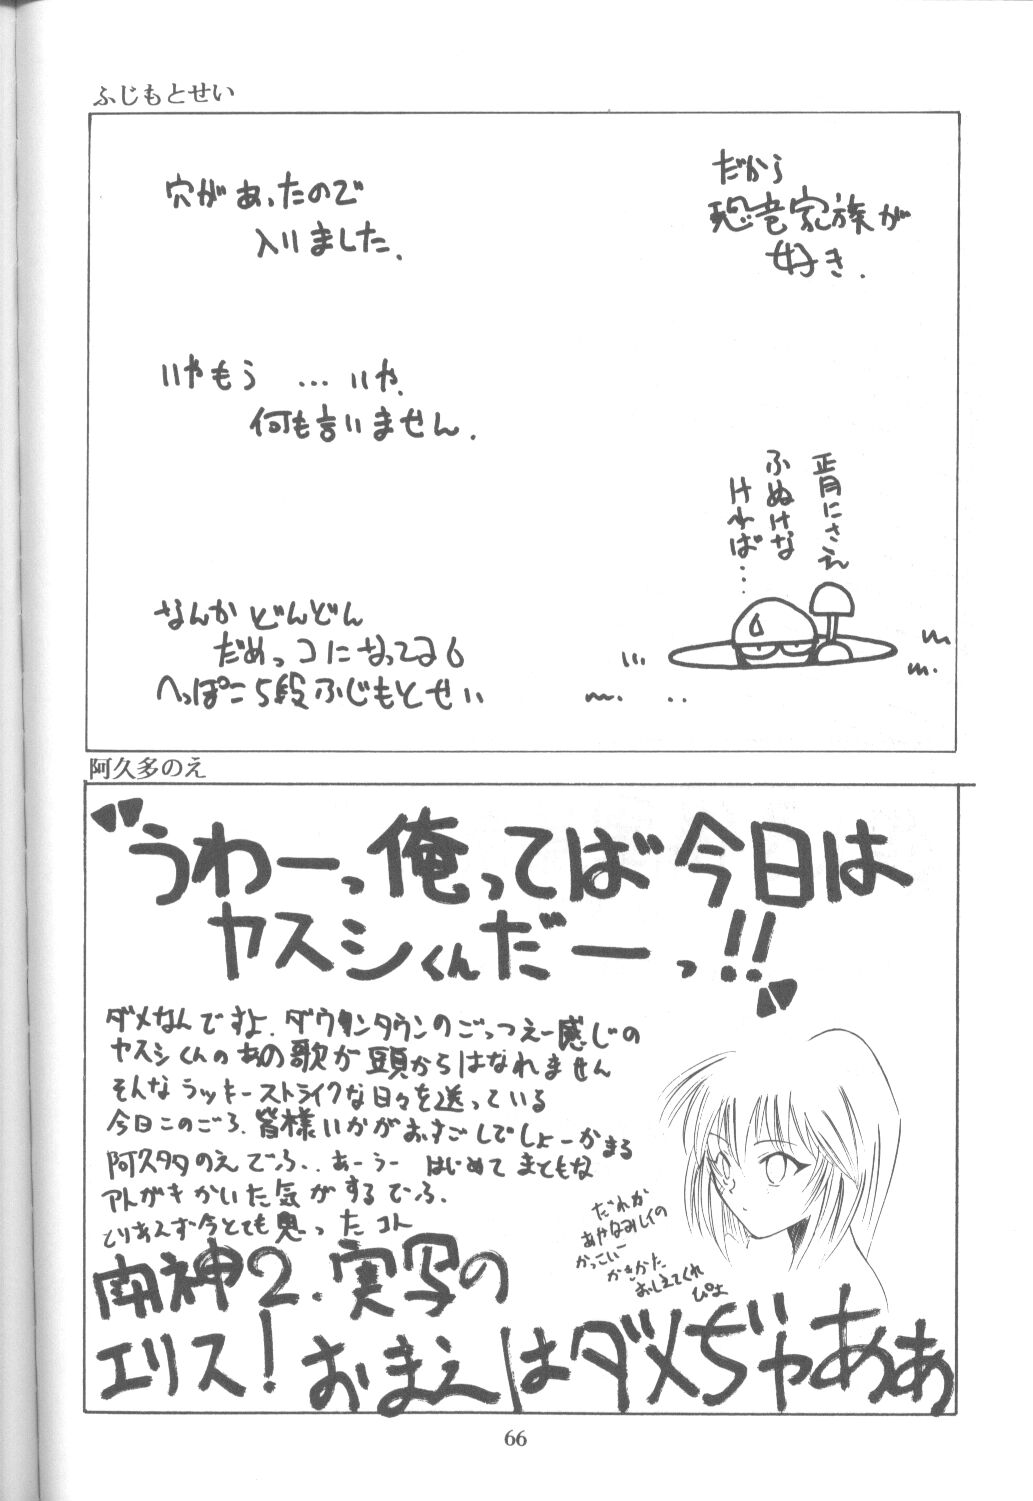 ふじもとせい
だから
恐竜家族が
好き.
穴があったので
入りました.
いやもう …いや.
何も言いません.
正月にさえ
ふぬけな
ければ…
なんか どんどん
だめっコになってる6
へっぽこ5段ふじもとせい
阿久多のえ
"うわーっ俺ってば今日は
ヤスシくんだーっ!!"
ダメなんですよ. ダウンタウンのごっつえー感じの
ヤスシくんのあの歌が頭からはなれません
そんなラッキーストライクな日々を送っている
今日このごろ.皆様いかがおすごしでしょーかまる
阿久多のえでふ..あーうー はじめてまともな
アトガキかいた気がするでふ.
とりあえず今とても思ったコト
南神2.実写の
エリス!おまえはダメぢゃあぁ
だれか
あやなみレイの
かっこいー
かきかた
おしえてくれ
ぴよ
66